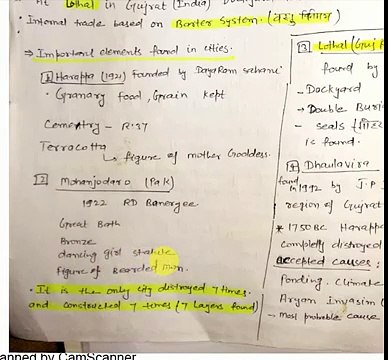 At Lothal in Gujrat (India)
• Internal trade based on Barter System. (वस्तु विनिमय)
⇒ Important elements found in cities.
[1] Harappa (1921) founded by DayaRam Sahani
• Granary food, grain kept
Cemetry - R-37
Terracotta
↳ figure of mother Goddess.
[2] Mohanjodaro (Pak)
1922 RD Banerjee
Great Bath
Bronze
dancing girl statute
figure of Bearded man.
• It is the only city distroyed 7 times.
and constructed 7 times (7 Layers found)
[3] Lothal (Guj
found by
- Dockyard
→ Double Buri
- seals
is found.
[4] Dhaulavira
found in 1992 by J.P.
region of Gujrat
* 1750 BC Harappa
completly distroyed
Accepted causes:
Ponding. Climate
Aryan Invasion
→ most probable cause
anned by CamScanner